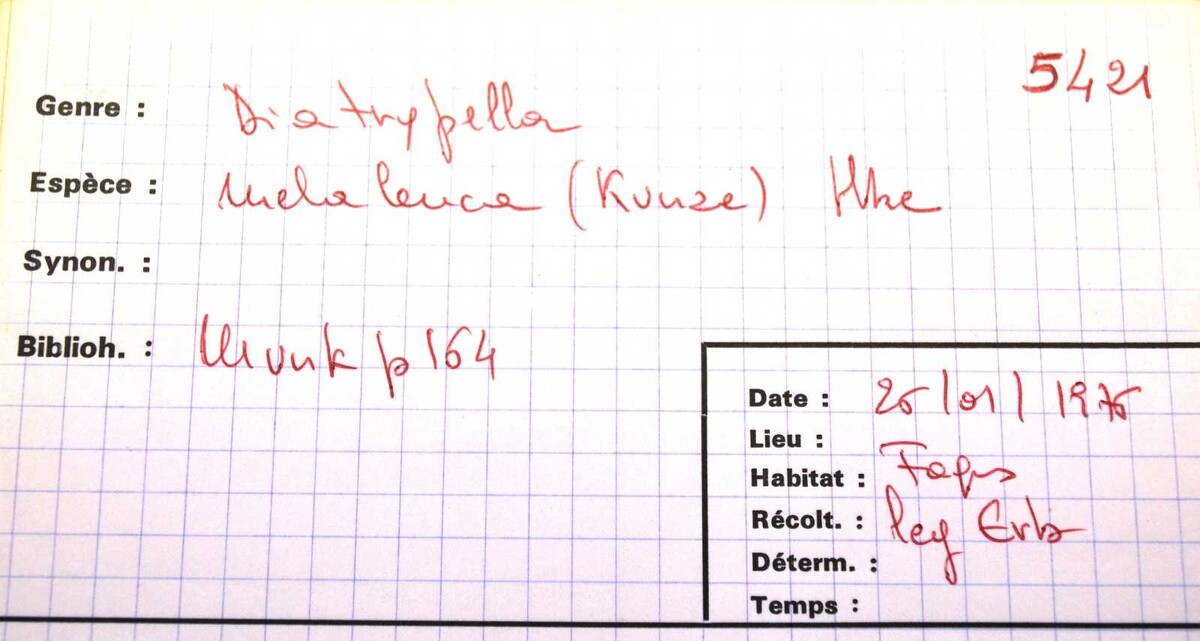 5421
Genre : Diatrypella
Espèce : melaleuca (Kunze) Nke
Synon. :
Biblioh. : Munk p 164
Date : 25/01/1975
Lieu :
Habitat : Fagus
Récolt. : leg Erb
Déterm. :
Temps :